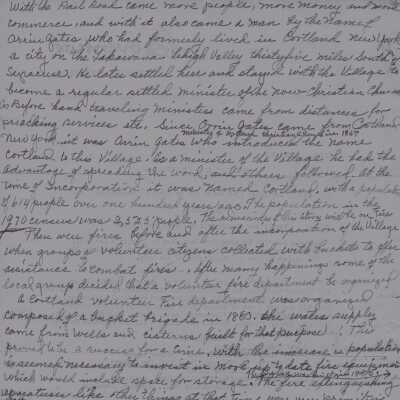 With the Rail Road came more people, more money and more
commerce, and with it also came a man by the name of
Orrin Gates who had formerly lived in Cortland New York
a city on the Lehigh Valley thirty five miles South of
Syracuse. He later settled here and stayed with the Village to
become a regular settled minister of the now Christian Church
Before hand traveling Ministers came from distances for
preaching services etc. Since Orrin Gates came from Cortland
New York, it was Orrin Gates who introduced the name
Cortland to this Village. As a minister of the Village he had the
advantage of spreading the word, and others followed. At the
time of Incorporation it was Named Cortland, with a population
of 614 people over one hundred years ago. The population in the
1970 census was 2,525 people. The remainder of this story will be on Fires
Then were fires, before and after the incorporation of the Village
when groups of volunteer citizens collected with buckets to offer
assistance to combat fires. After many happenings some of the
local groups decided that a volunteer fire department be organized
A Cortland volunteer Fire department was organized
composed of a bucket brigade in 1863. The water supply
came from wells and cisterns built for that purpose. This
proved to be a success for a time. With the increase in population
it seemed necessary to invest in more up to date fire equipment
which would include space for storage. The fire extinguishing
apparatuses like other things at that time were very